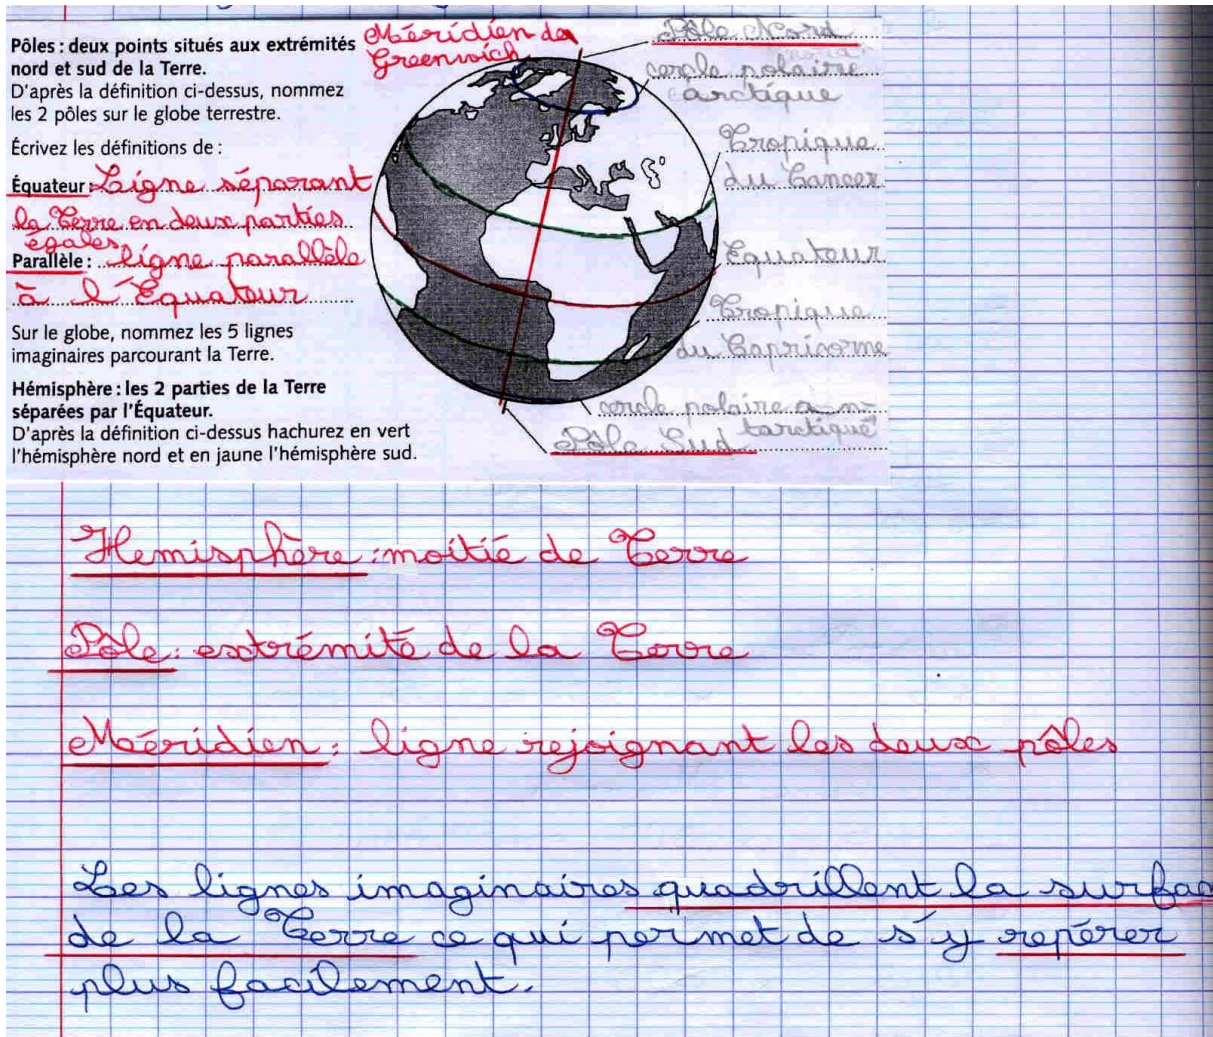 Pôles : deux points situés aux extrémités
nord et sud de la Terre.
D'après la définition ci-dessus, nommez
les 2 pôles sur le globe terrestre.
Écrivez les définitions de :
Équateur : Ligne séparant
la Terre en deux parties
égales
Parallèle : ligne parallèle
à l'Équateur
Sur le globe, nommez les 5 lignes
imaginaires parcourant la Terre.
Hémisphère : les 2 parties de la Terre
séparées par l'Équateur.
D'après la définition ci-dessus hachurez en vert
l'hémisphère nord et en jaune l'hémisphère sud.
Méridien de
Greenwich
Pôle Nord
cercle polaire
arctique
Tropique
du Cancer
Equateur
Tropique
du Capricorne
cercle polaire an-
tarctique
Pôle Sud
Hemisphère : moitié de Terre
Pôle : extrémité de la Terre
Méridien : ligne rejoignant les deux pôles
Les lignes imaginaires quadrillent la surfac
de la Terre ce qui permet de s'y repérer
plus facilement.